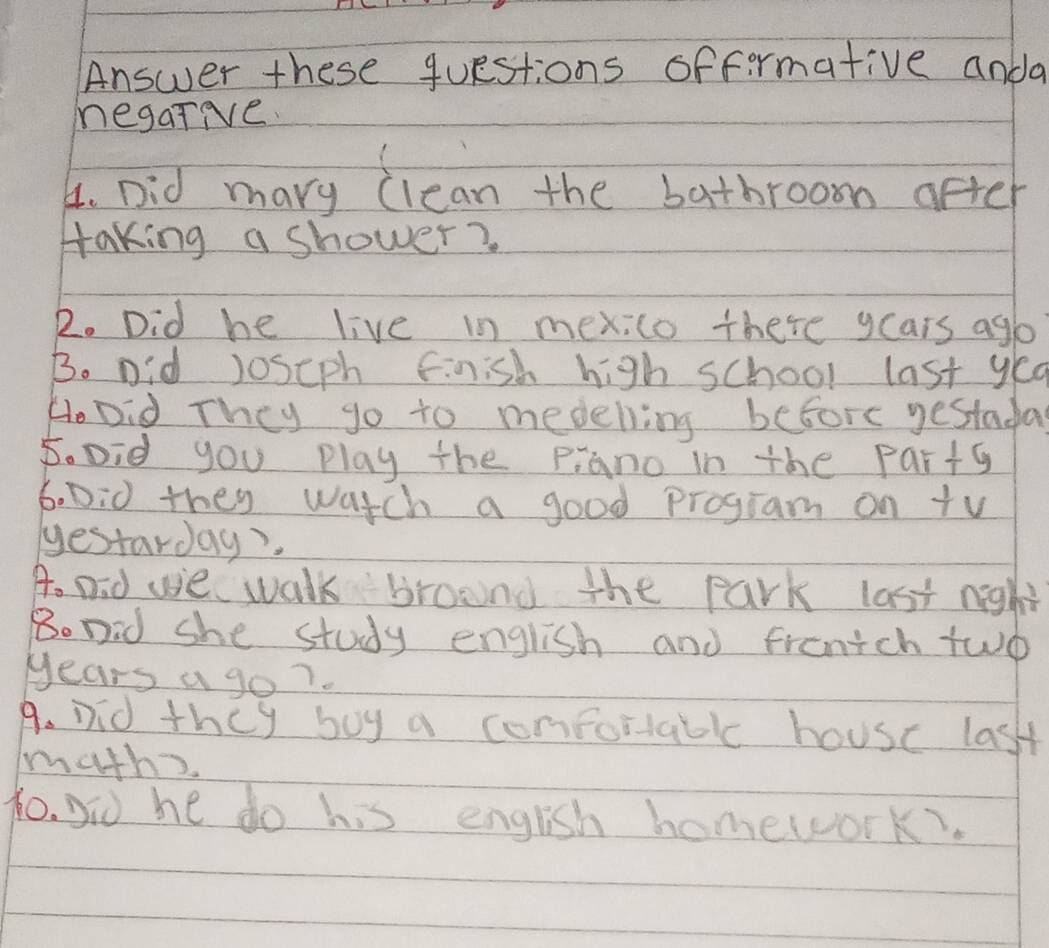 Answer these questions offirmative anda
negative.
1. Did mary clean the bathroom after
taking a shower?
2. Did he live in mexico there years ago
3. Did Joseph finish high school last yea
4. Did They go to medelling before yestaday
5. Did you play the Piano in the party
6. Did they watch a good program on tv
yestarday?.
7. Did we walk around the park last night
8. Did she study english and frentch two
years ago?.
9. Did they buy a comfortable house last
math?.
10. Did he do his english homework?.